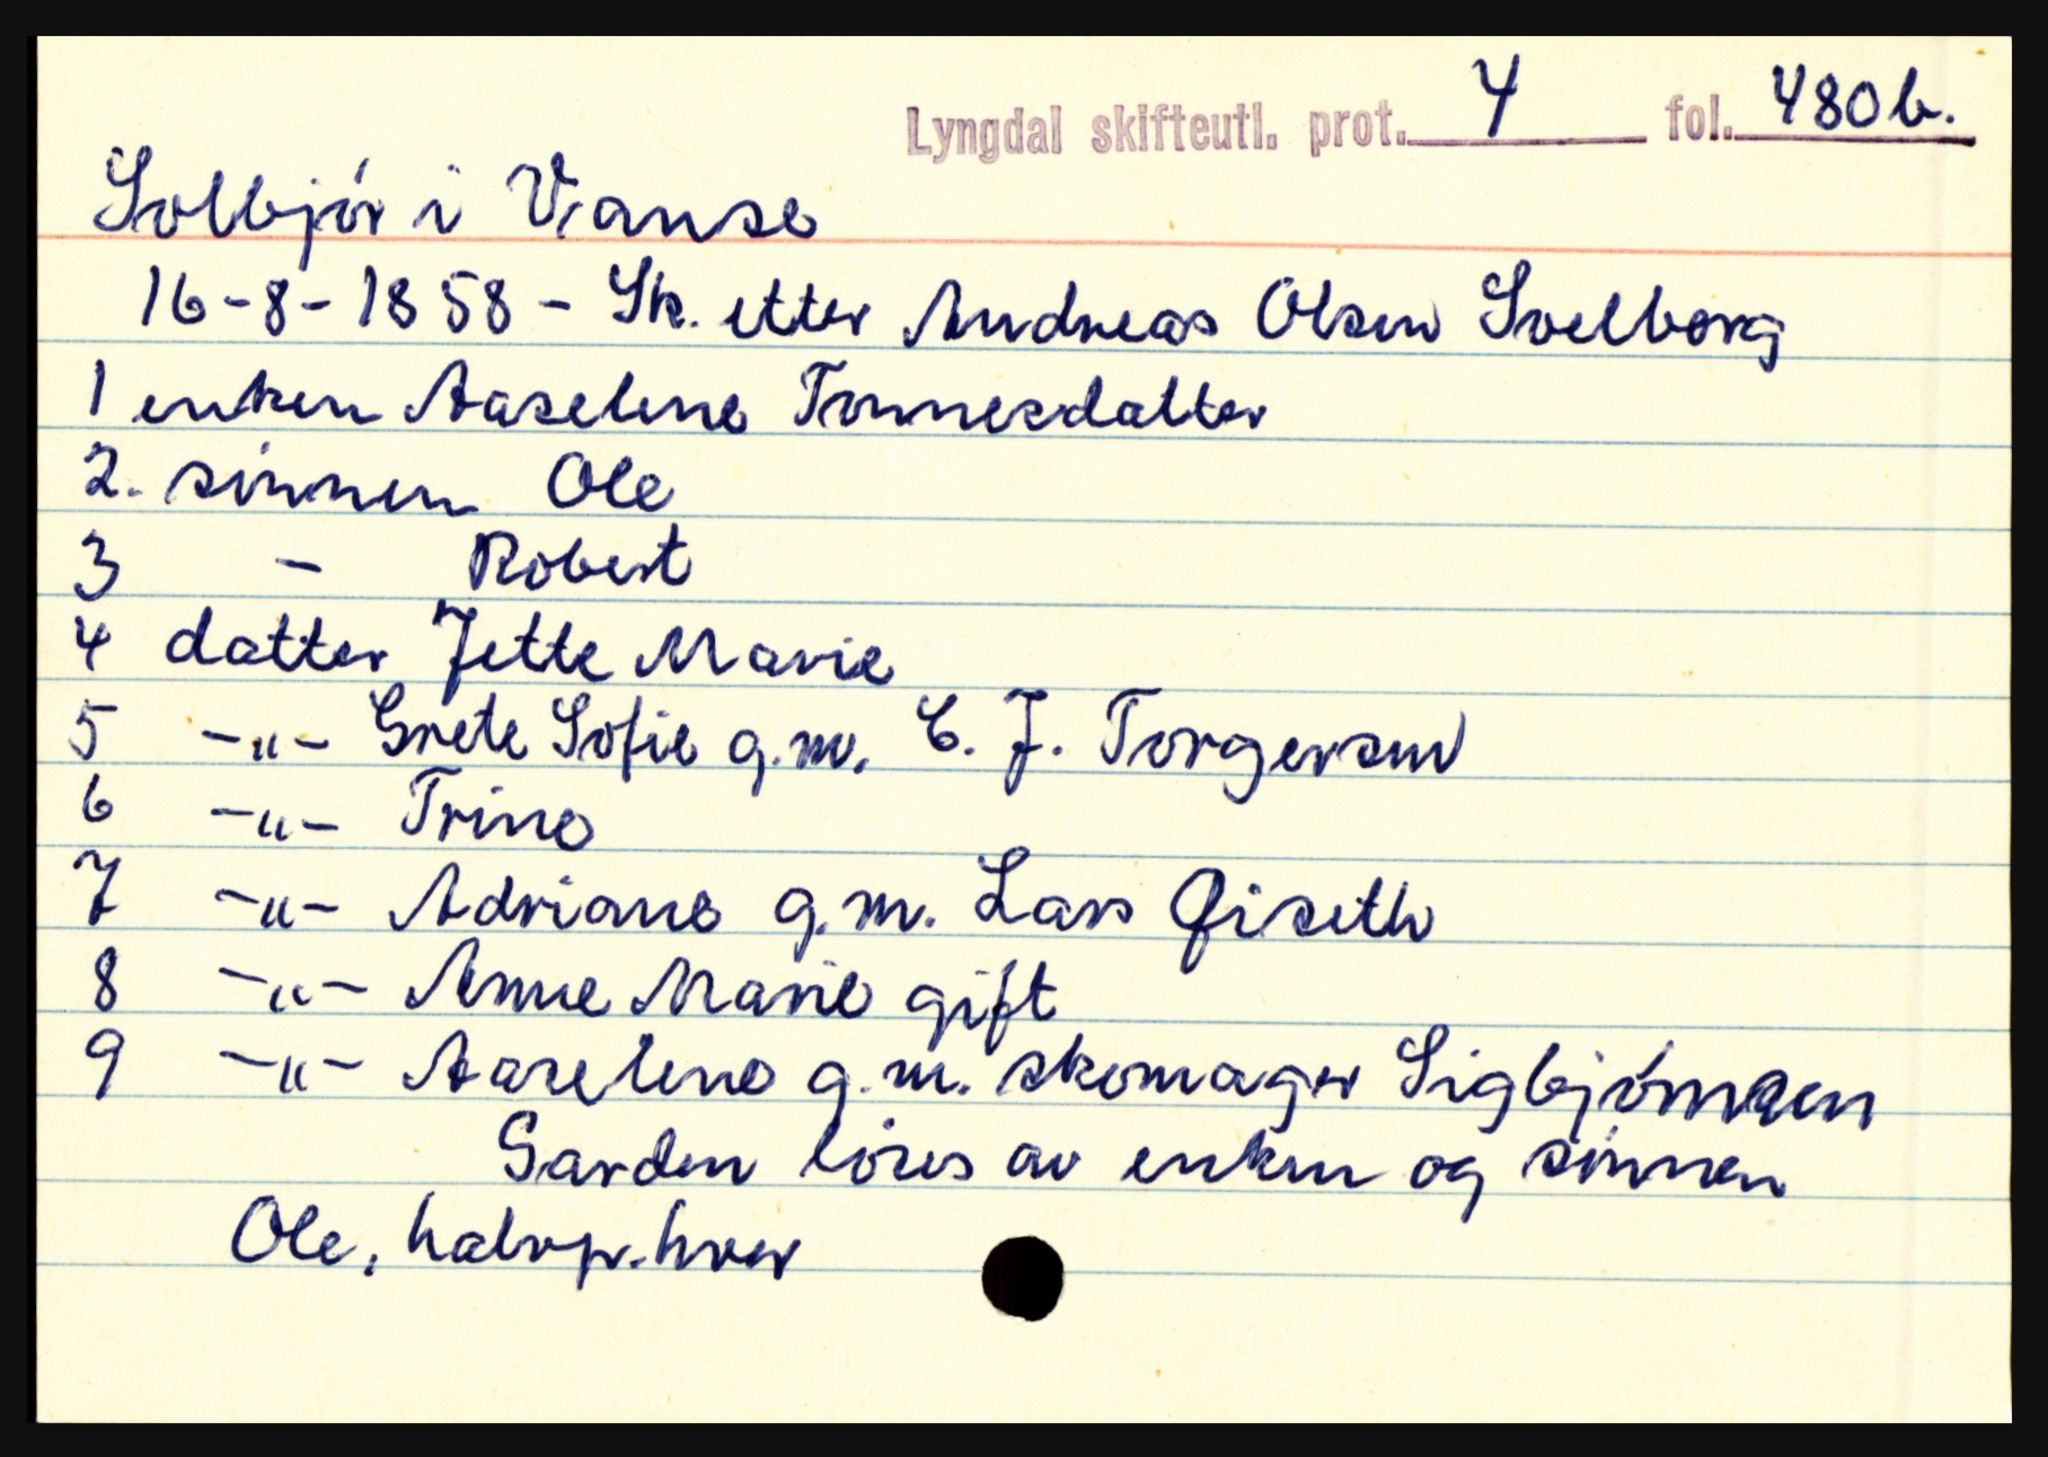 Lyngdal skifteutl. prot. 4 fol. 480b.
Solbjør i Vanse
16-8-1858 - Sk. etter Andreas Olsen Svelborg
1 enken Aaselene Tønnesdatter
2. sønnen Ole
3 - Robert
4 datter Jette Marie
5 -"- Grete Sofie g.m. C. J. Torgersen
6 -"- Trine
7 -"- Adriane g.m. Lars Giseth
8 -"- Anne Marie gift
9 -"- Aaselene g.m. skomager Sigbjørnsen
Garden løses av enken og sønnen
Ole, halvp. hver